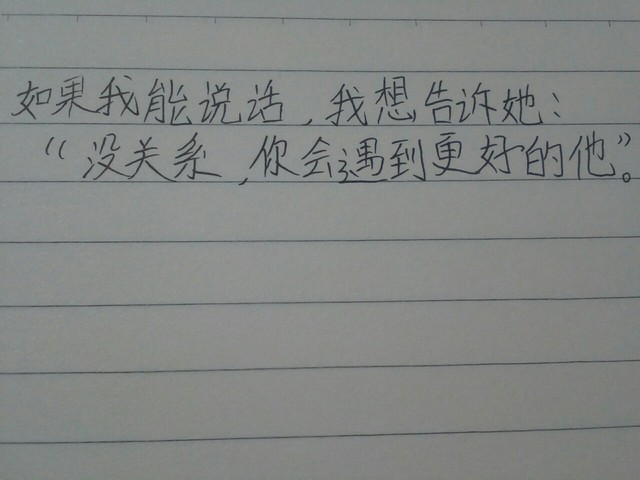 如果我能说话，我想告诉她：
“没关系，你会遇到更好的他”。